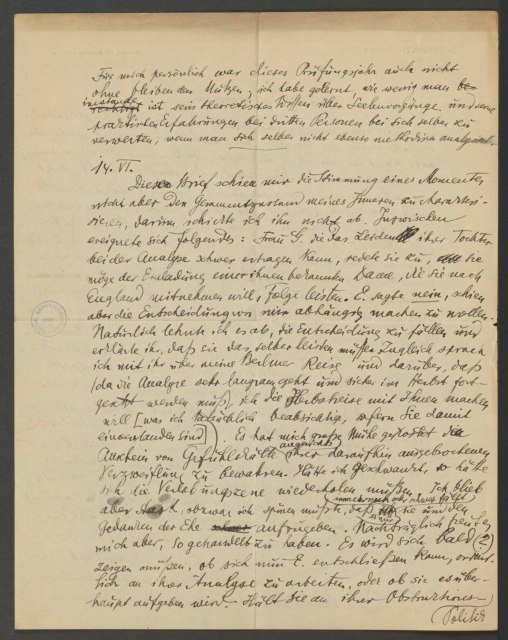 Für mich persönlich war dieses Prüfungsjahr auch nicht
ohne bleibenden Nutzen; ich habe gelernt, wie wenig man
imstande ist sein theoretisches Wissen über Seelenvorgänge und seine
praktischen Erfahrungen bei dritten Personen bei sich selber zu
verwerten, wenn man sich selber nicht ebenso methodisch
14. VI.
Dieser Brief schien mir die Stimmung eines Momentes
nicht aber den Gesammtzustand meines Inneren zu charakteri-
sieren, darum schickte ich ihn nicht ab. Inzwischen
ereignete sich folgendes: Frau G. die das Leiden ihrer Tochter
bei der Analyse schwer ertragen kann, redete ihr zu, sie
möge der Einladung einer ihnen bekannten Dame, die sie nach
England mitnehmen will, Folge leisten. E. sagte nein, schien
aber die Entscheidung von mir abhängig machen zu wollen.
Natürlich lehnte ich es ab, die Entscheidung zu fällen und
erklärte ihr, daß sie das selber leisten müsse. Zugleich sprach
ich mit ihr über meine Berliner Reise und darüber, daß
(da die Analyse sehr langsam geht und sicher im Herbst fort-
gesetzt werden muß), ich die Herbstreise mit Ihnen machen
will [was ich tatsächlich beabsichtige, sofern Sie damit
einverstanden sind]. Es hat mich große Mühe gekostet den
Anschein von Gefühlskälte ihrer daraufhin ausgebrochenen
angesichts
Verzweiflung zu bewahren. Hätte ich geschwankt, so hätte
sich die Verlobungsszene wiederholen müssen. Ich blieb
aber hart, obzwar ich spüren mußte, daß sie und den
Gedanken der Ehe aufzugeben. Nachträglich freut es
mich aber, so gehandelt zu haben. Es wird sich bald (?)
zeigen müssen, ob sich nun E. entschließen kann,
lich an ihrer Analyse zu arbeiten, oder ob sie es über-
haupt aufgeben wird. Hält sie an ihrer Obstruktions-
Politik